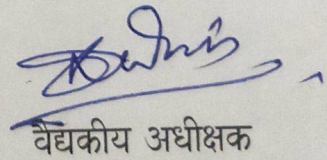 वैद्यकीय अधीक्षक